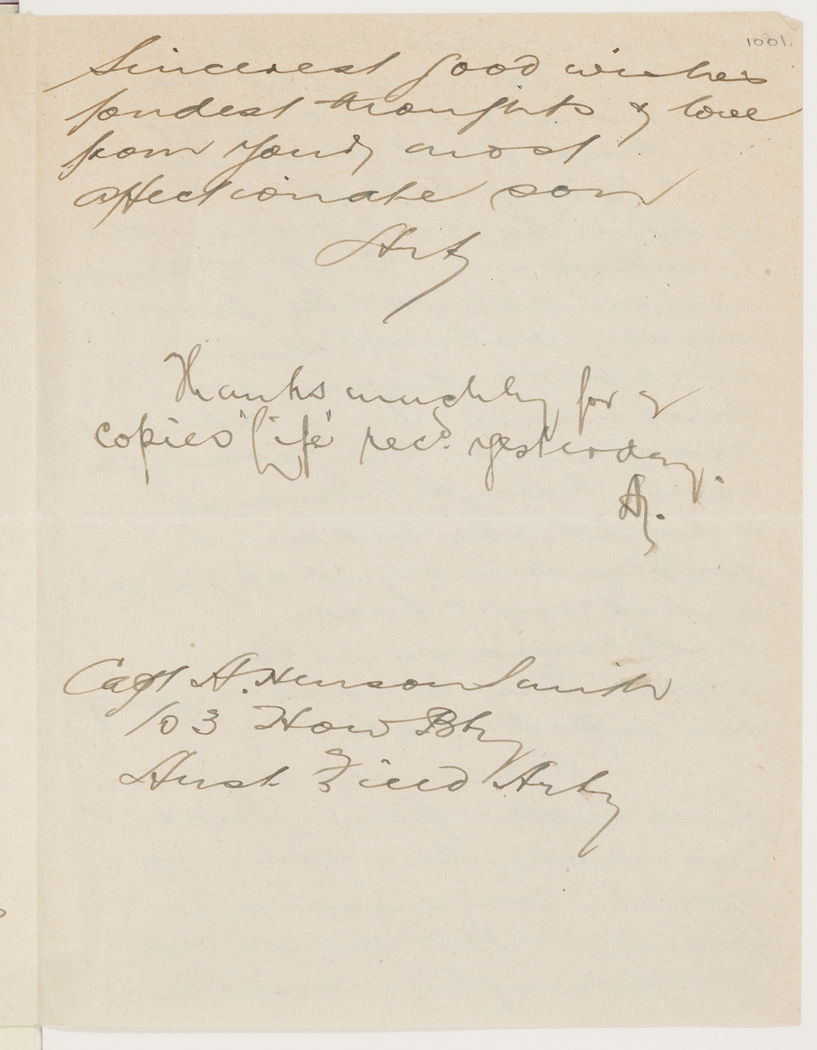 1001.
Sincerest good wishes
fondest thoughts & love
from your most
affectionate son
Art
Thanks muchly for
copies "Life" recd. yesterday.
A.
Capt A. Henson Smith
103 How Bty
Aust. Field Arty